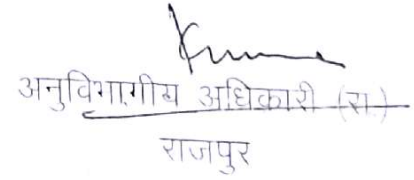 अनुविभागीय अधिकारी (रा.)
राजपुर